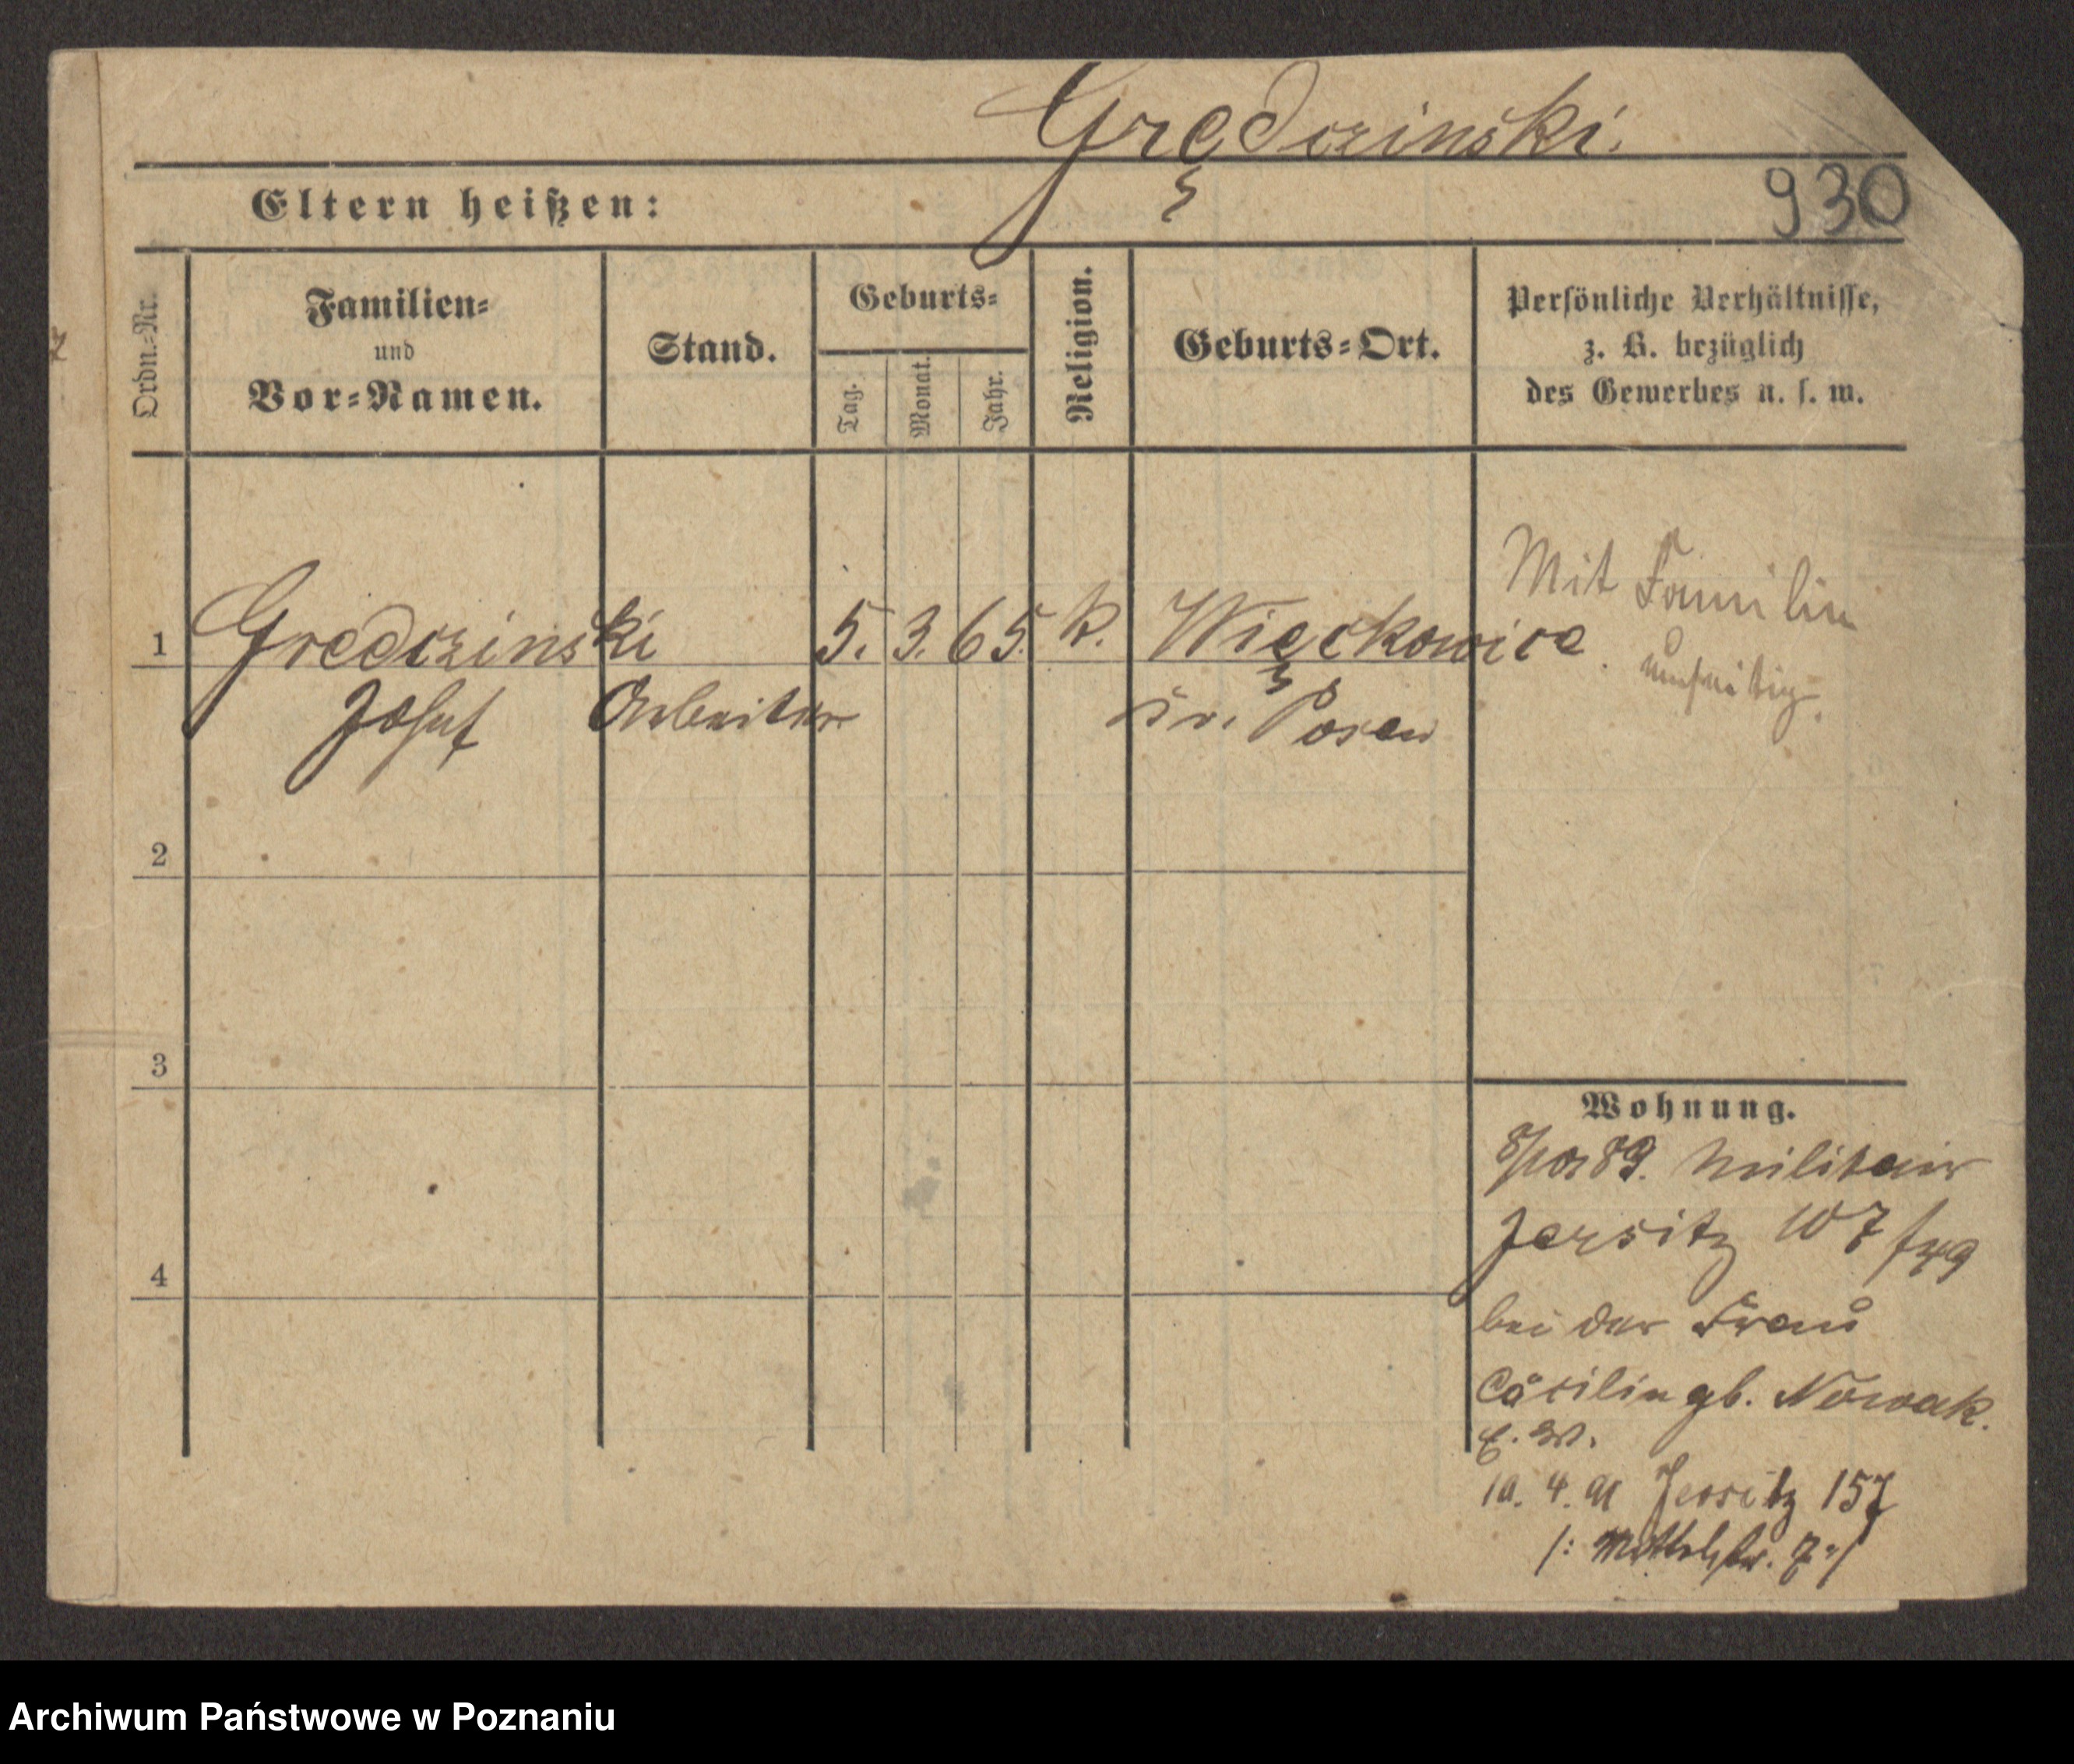 Grędczinski.
Eltern heißen:
930
Ordn.-Nr.
Familien-
und
Vor-Namen.
Stand.
Geburts-
Tag.
Monat.
Jahr.
Religion.
Geburts-Ort.
Persönliche Verhältnisse,
z. B. bezüglich
des Gewerbes u. s. w.
Mit Familie
umseitig.
1 Gredczinski 5. 3. 65. k. Więckowice
Josef Arbeiter Kr. Posen
2
3
4
Wohnung.
89. Militair
Jersitz 107
bei der Frau
Cäcilie gb. Nowak.
10. 4. 91 Jersitz 157
/: Mittelstr. 7 :/
Archiwum Państwowe w Poznaniu